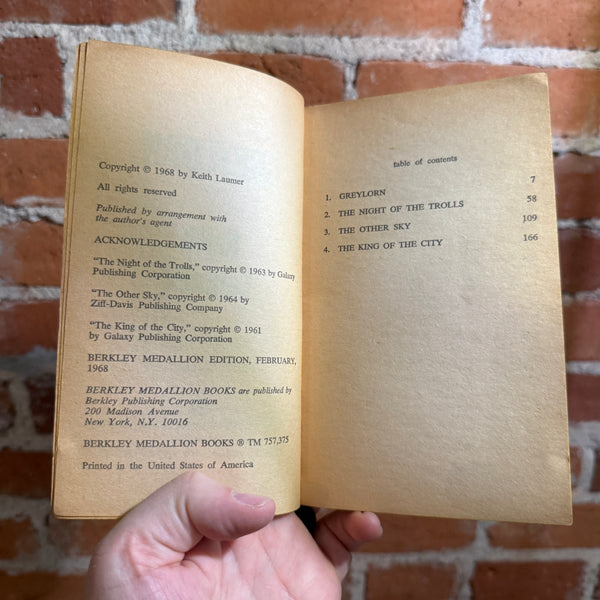 Copyright © 1968 by Keith Laumer
All rights reserved
Published by arrangement with
the author's agent
ACKNOWLEDGEMENTS
"The Night of the Trolls," copyright © 1963 by Galaxy
Publishing Corporation
"The Other Sky," copyright © 1964 by
Ziff-Davis Publishing Company
"The King of the City," copyright © 1961
by Galaxy Publishing Corporation
BERKLEY MEDALLION EDITION, FEBRUARY,
1968
BERKLEY MEDALLION BOOKS are published by
Berkley Publishing Corporation
200 Madison Avenue
New York, N.Y. 10016
BERKLEY MEDALLION BOOKS ® TM 757,375
Printed in the United States of America
table of contents
1. GREYLORN 7
2. THE NIGHT OF THE TROLLS 58
3. THE OTHER SKY 109
4. THE KING OF THE CITY 166